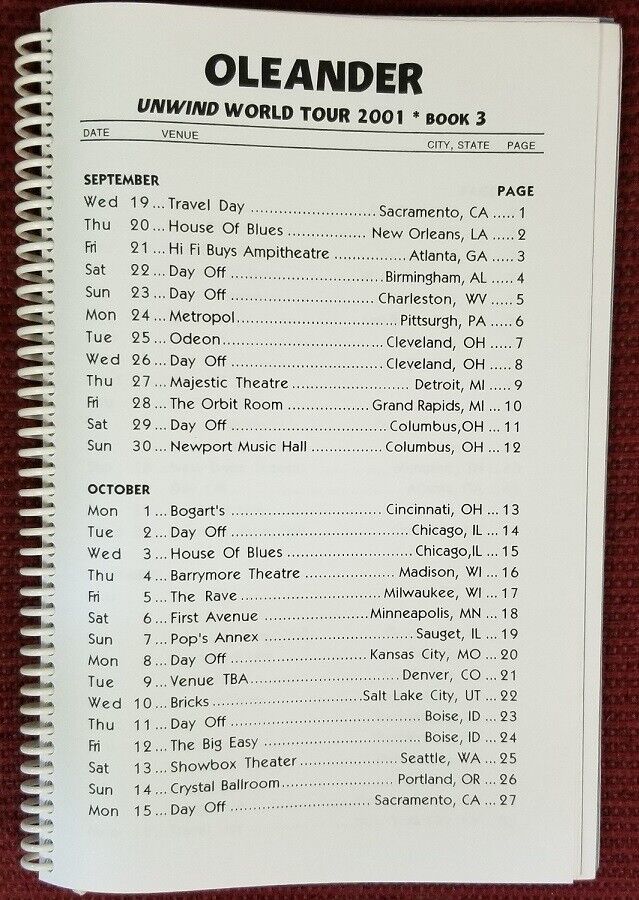 OLEANDER
UNWIND WORLD TOUR 2001 * BOOK 3
DATE VENUE CITY, STATE PAGE
SEPTEMBER PAGE
Wed 19... Travel Day ........................ Sacramento, CA ..... 1
Thu 20... House Of Blues ................ New Orleans, LA ..... 2
Fri 21... Hi Fi Buys Ampitheatre .............. Atlanta, GA ..... 3
Sat 22... Day Off ............................. Birmingham, AL ..... 4
Sun 23... Day Off ............................ Charleston, WV ..... 5
Mon 24... Metropol ............................... Pittsurgh, PA ..... 6
Tue 25... Odeon ................................ Cleveland, OH ..... 7
Wed 26... Day Off .............................. Cleveland, OH ..... 8
Thu 27... Majestic Theatre ....................... Detroit, MI ..... 9
Fri 28... The Orbit Room ............... Grand Rapids, MI ... 10
Sat 29... Day Off .............................. Columbus,OH ... 11
Sun 30... Newport Music Hall ............. Columbus, OH ... 12
OCTOBER
Mon 1... Bogart's ............................. Cincinnati, OH ... 13
Tue 2... Day Off ................................. Chicago, IL ... 14
Wed 3... House Of Blues ....................... Chicago,IL ... 15
Thu 4... Barrymore Theatre ................. Madison, WI ... 16
Fri 5... The Rave ............................ Milwaukee, WI ... 17
Sat 6... First Avenue ..................... Minneapolis, MN ... 18
Sun 7... Pop's Annex ............................ Sauget, IL ... 19
Mon 8... Day Off .......................... Kansas City, MO ... 20
Tue 9... Venue TBA ............................ Denver, CO ... 21
Wed 10... Bricks .......................... Salt Lake City, UT ... 22
Thu 11... Day Off .................................. Boise, ID ... 23
Fri 12... The Big Easy ........................... Boise, ID ... 24
Sat 13... Showbox Theater .................... Seattle, WA ... 25
Sun 14... Crystal Ballroom .................... Portland, OR ... 26
Mon 15... Day Off ........................... Sacramento, CA ... 27